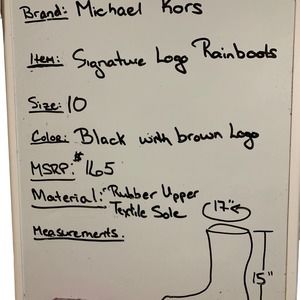 Brand: Michael Kors
Item: Signature Logo Rainboots
Size: 10
Color: Black with brown Logo
MSRP: $165
Material: Rubber Upper
Textile Sole
Measurements.
17"
15"